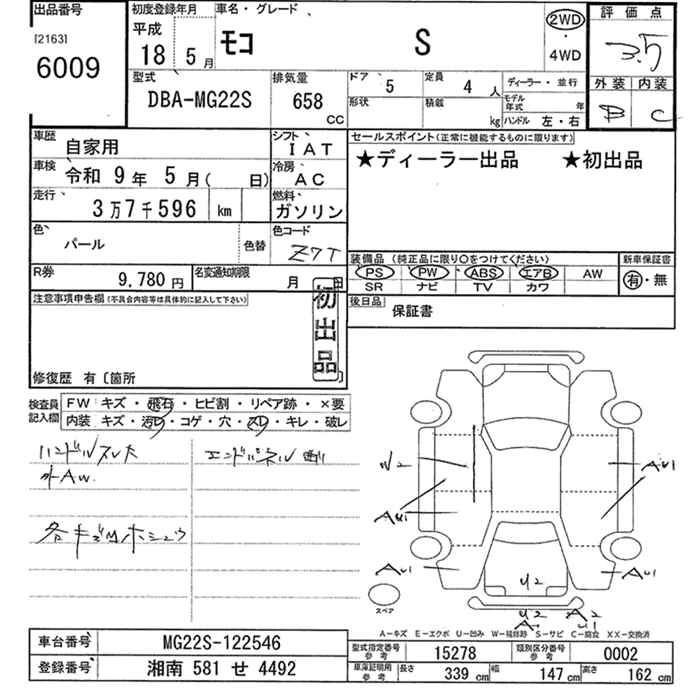 出品番号
[2163]
6009
初度登録年月
平成
18年 5月
車名・グレード
モコ S
2WD
・
4WD
評価点
3.5
外装 内装
B C
型式
DBA-MG22S
排気量
658
CC
ドア 5
定員 4人
形状
積載 kg
ディーラー・並行
モデル年式 年
ハンドル 左・右
車歴 自家用
シフト IAT
車検 令和 9年 5月( 日)
冷房 AC
走行 3万7千596 km
燃料 ガソリン
色 パール 色替
色コード Z7T
R券 9,780円
名変通知期限 月 日
セールスポイント(正常に機能するものに限ります)
★ディーラー出品 ★初出品
装備品(純正品に限り○をつけてください)
PS PW ABS エアB AW
SR ナビ TV カワ
新車保証書
有・無
後日品
保証書
注意事項申告欄(不具合内容等は具体的に記入して下さい)
初出品
修復歴 有〔箇所 〕
検査員記入欄
FW キズ・飛石・ヒビ割・リペア跡・×要
内装 キズ・汚レ・コゲ・穴・スレ・キレ・破レ
ハンドルスレ大
外AW.
エンドパネル
各キズ凹ホシュウ
W2
AU1
AU1
AU1
AU1
U2
U2
A2
U1
スペア
A-キズ E-エクボ U-凹み W-補修跡 S-サビ C-腐食 XX-交換済
車台番号 MG22S-122546
登録番号 湘南 581 せ 4492
型式指定番号 参考 15278
類別区分番号 参考 0002
車庫証明用 参考 長さ 339 cm 幅 147 cm 高さ 162 cm